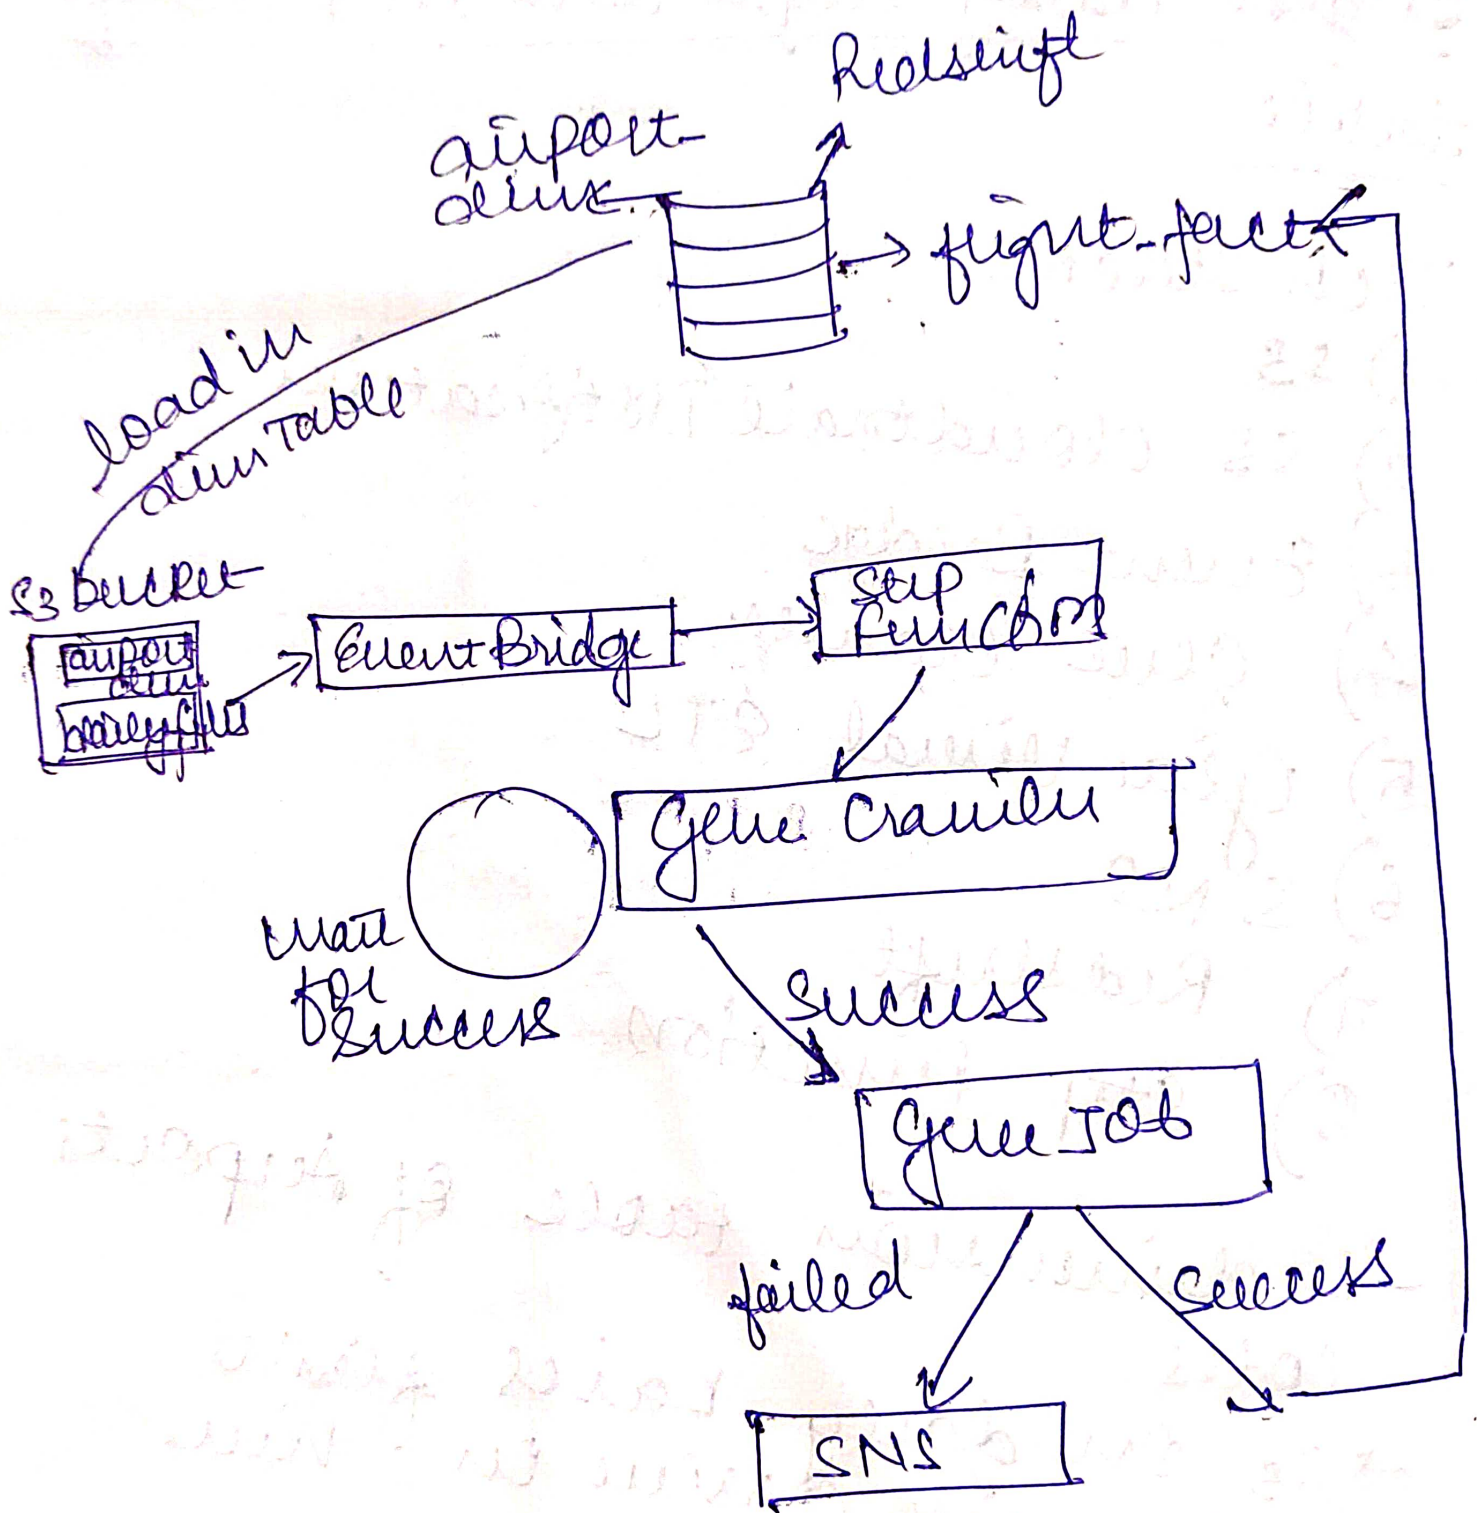 Redshift
airport_
dim
flight_fact
load in
dim Table
S3 bucket
airport
dim
daily files
EventBridge
Step
Function
Glue Crawler
wait
for
success
success
Glue JOb
failed
success
SNS